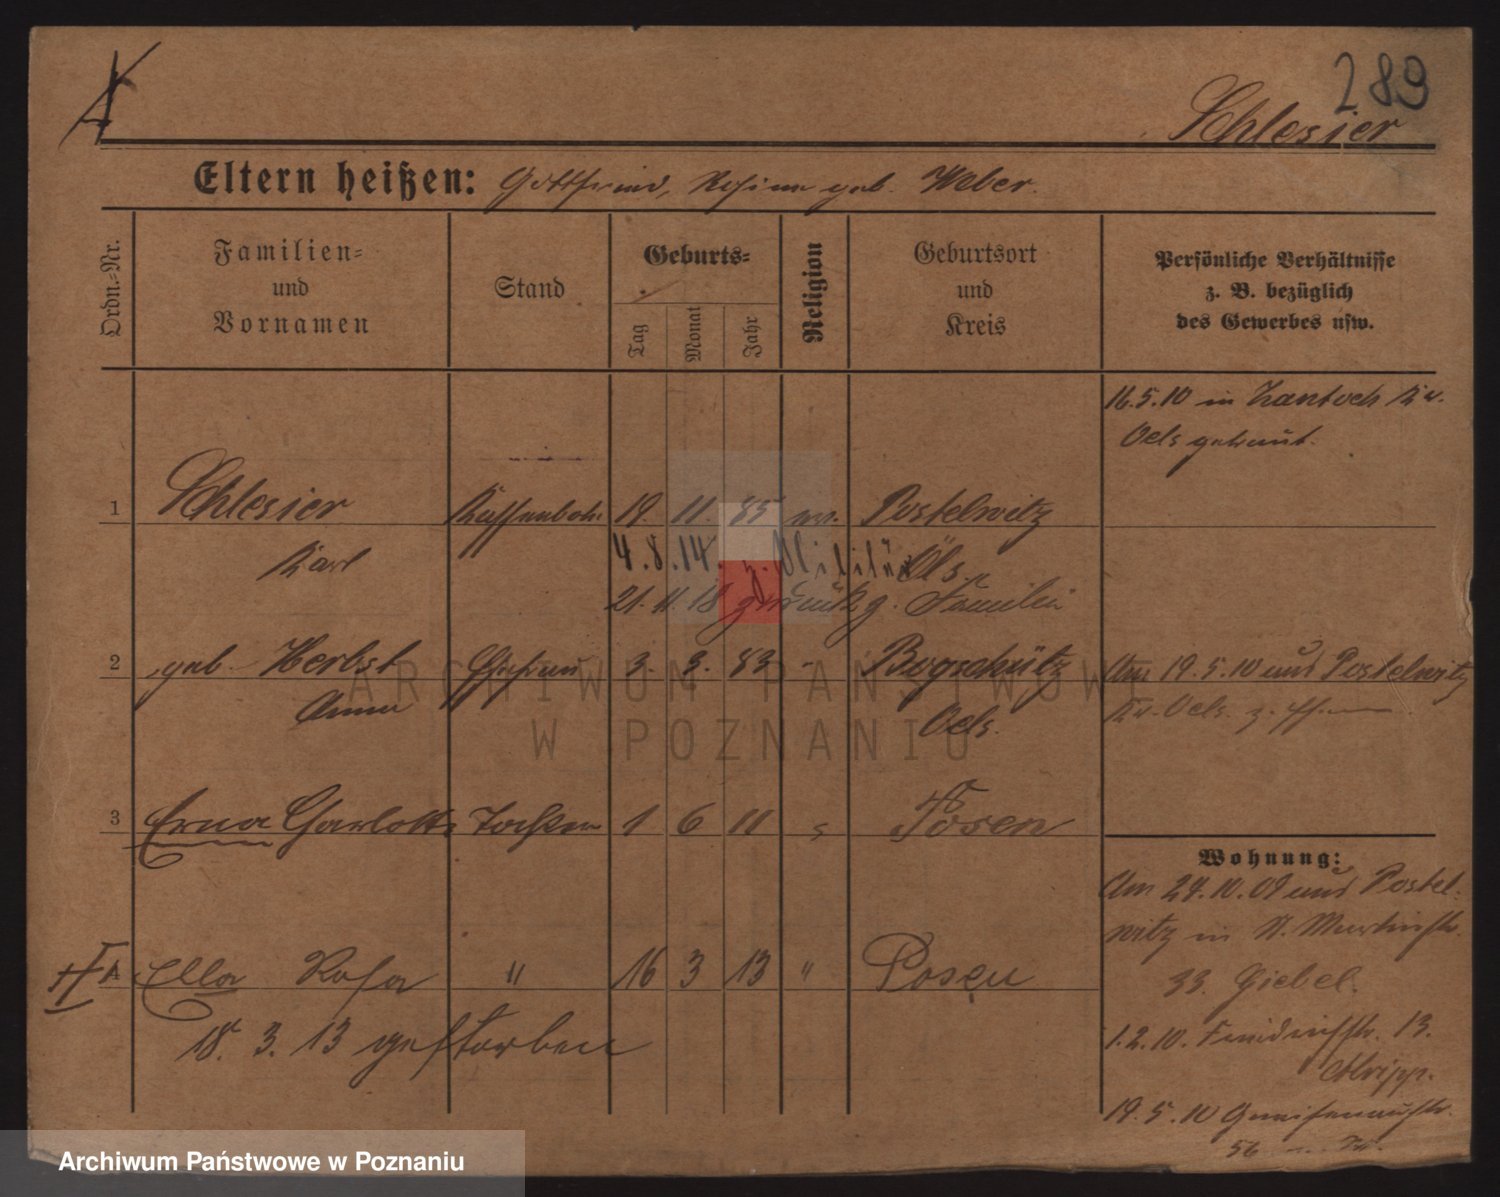 289
Schlesier
Eltern heißen: Gottfried, Rosina geb. Weber.
Ordn.-Nr.
Familien-
und
Vornamen
Stand
Geburts-
Tag
Monat
Jahr
Religion
Geburtsort
und
Kreis
Persönliche Verhältnisse
z. B. bezüglich
des Gewerbes usw.
16.5.10 in Zantoch Kr.
Oels getraut.
1 Schlesier Kassenbote 19. 11. 85 ev. Postelwitz
Karl Öls
4.8.14. z. Militär
21.11.18 zurück z. Familie
2 geb. Herbst Ehefrau 3. 3. 83 " Bogschütz
Anna Oels.
Am 19.5.10 aus Postelwitz
Kr. Oels z.
3 Erna Charlotte Tochter 1 6 11 Posen
4 Ella Rosa " 16 3 13 " Posen
18. 3. 13 gestorben
Wohnung:
Am 24.10.09 aus Postel-
witz in St. Martinstr.
33. Giebel.
1.2.10. Friedrichstr. 13.
19.5.10 Gneisenaustr.
56
ARCHIWUM PAŃSTWOWE
W POZNANIU
Archiwum Państwowe w Poznaniu